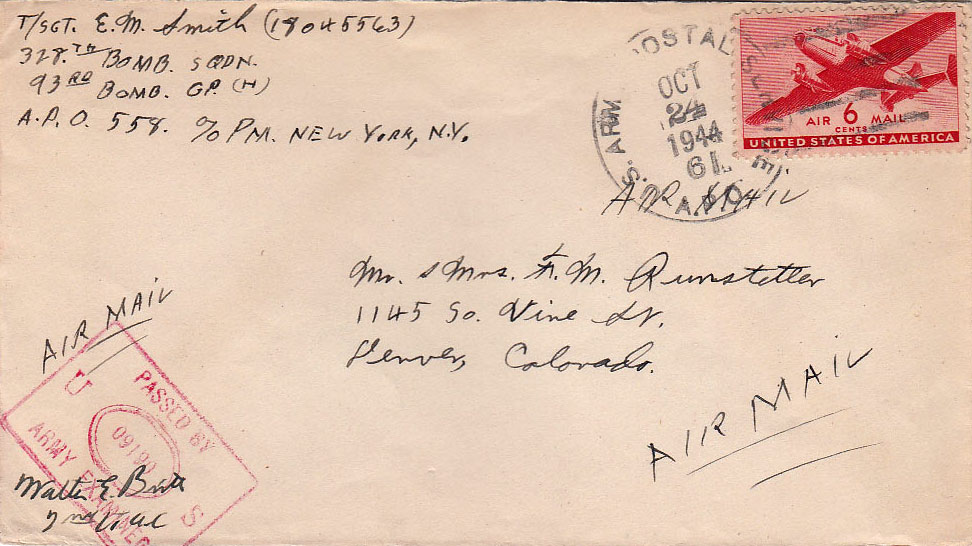 T/SGT. E.M. Smith (18045563)
328.TH BOMB. SQDN.
93RD BOMB. GP. (H)
A.P.O. 558. % PM. NEW YORK, N.Y.
POSTAL
OCT
24
1944
U.S. ARMY
A.P.O.
AIR 6 MAIL
CENTS
UNITED STATES OF AMERICA
AIR MAIL
Mr. & Mrs. F. M. Runstetler
1145 So. Vine St.
Denver, Colorado.
AIR MAIL
AIR MAIL
PASSED BY
U S
ARMY EXAMINER
Walter E.
2nd Lt. AC